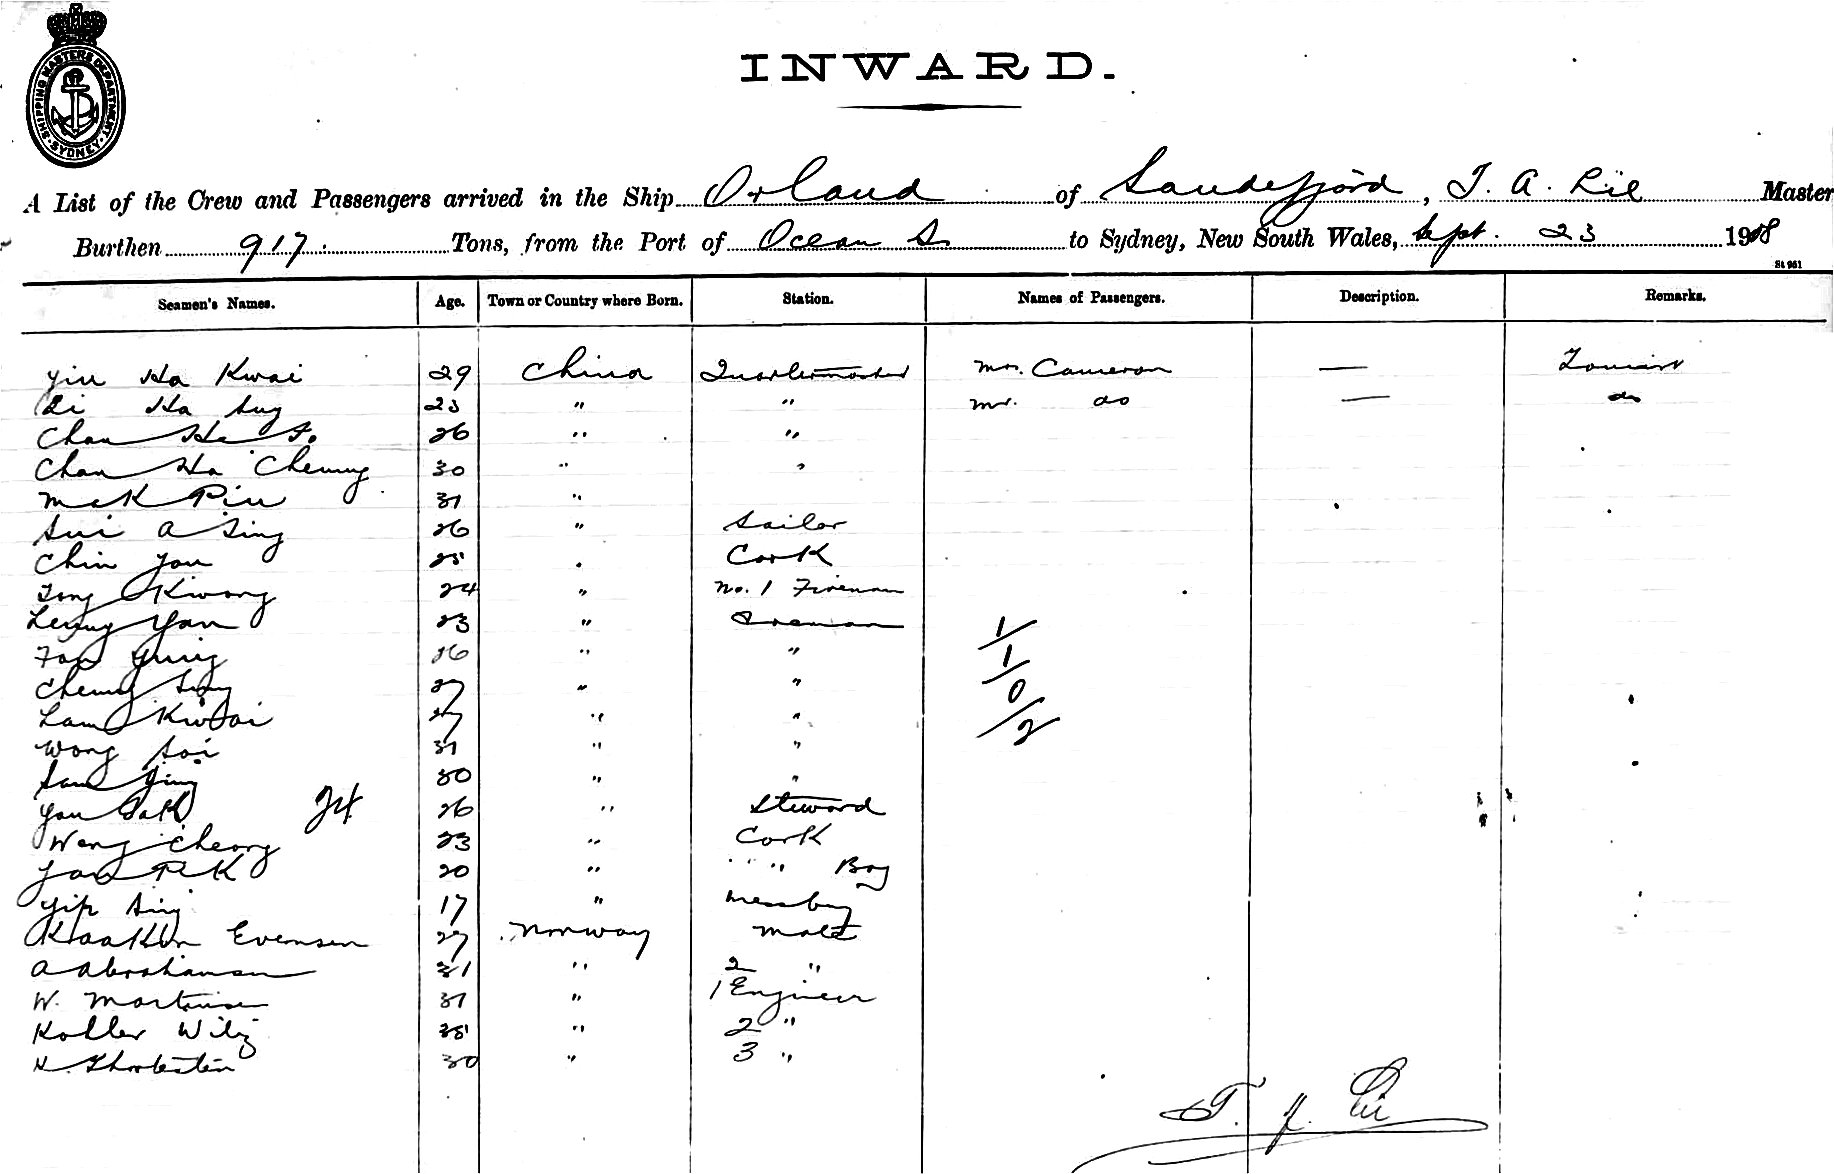 SHIPPING MASTERS DEPARTMENT SYDNEY
INWARD.
A List of the Crew and Passengers arrived in the Ship Orland of Sandefjord, T. A. Lie Master
Burthen 917 Tons, from the Port of Ocean Is to Sydney, New South Wales, Sept. 23 1908
St 961
Seamen's Names. Age. Town or Country where Born. Station. Names of Passengers. Description. Remarks.
Yiu Ha Kwai 29 China Quartermaster Mrs. Cameron — Tourist
Li Ha Sug 23 " " Mr. do — do
Chan Ha 26 " "
Chan Ha Cheung 30 " "
Mak Piu 31 "
Sui A Sing 26 " Sailor
Chin You 25 " Cook
Tong Kwong 24 " No. 1 Fireman
Leung Yan 23 " Fireman 1/
26 " " 1/
Cheung Sing 27 " " 0/
Lam Kwai 27 " " 2
Wong Soi 31 " "
Sam Ying 30 " "
24 26 " Steward
Wong Cheong 23 " Cook
20 " " Boy
Yip Sing 17 " Messboy
Haakon Evensen 27 Norway Mate
A Abrahamsen 31 " 2 "
W. Martinsen 31 " 1 Engineer
Kohler 35 " 2 "
H. 30 " 3 "
T. A. Lie